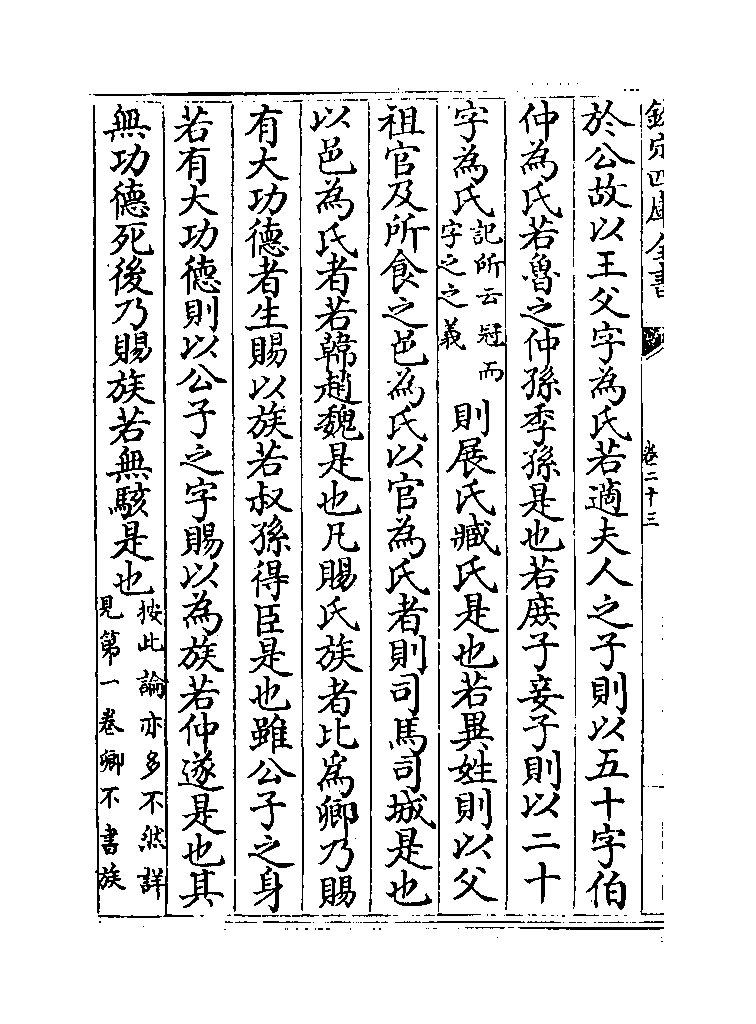 欽定四庫全書
卷二十三
於公故以王父字為氏若適夫人之子則以五十字伯
仲為氏若魯之仲孫季孫是也若庶子妾子則以二十
字為氏記所云冠而字之之義則展氏臧氏是也若異姓則以父
祖官及所食之邑為氏以官為氏者則司馬司城是也
以邑為氏者若韓趙魏是也凡賜氏族者比為卿乃賜
有大功德者生賜以族若叔孫得臣是也雖公子之身
若有大功德則以公子之字賜以為族若仲遂是也其
無功德死後乃賜族若無駭是也按此論亦多不然詳見第一卷卿不書族